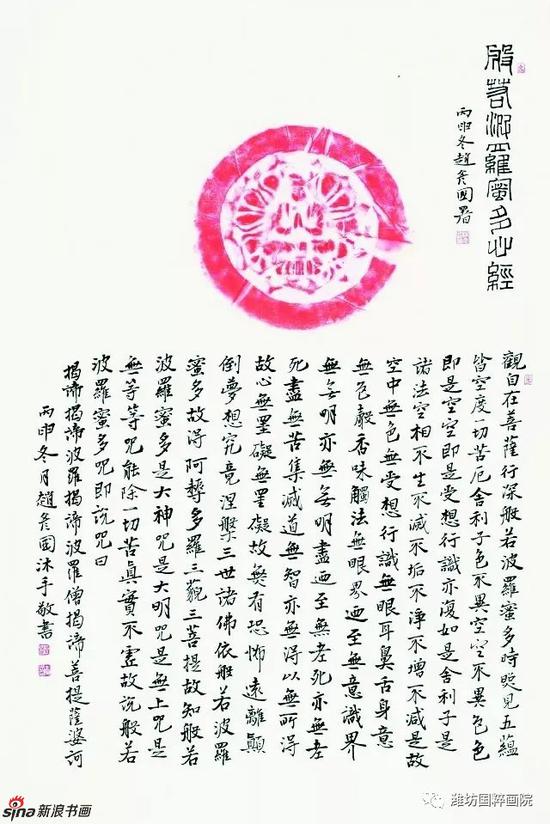 般若波羅蜜多心經
丙申冬趙國署
觀自在菩薩行深般若波羅蜜多時照見五蘊
皆空度一切苦厄舍利子色不異空空不異色色
即是空空即是受想行識亦復如是舍利子是
諸法空相不生不滅不垢不淨不增不減是故
空中無色無受想行識無眼耳鼻舌身意
無色聲香味觸法無眼界迺至無意識界
無無明亦無無明盡迺至無老死亦無老
死盡無苦集滅道無智亦無得以無所得
故心無罣礙無罣礙故無有恐怖遠離顛
倒夢想究竟涅槃三世諸佛依般若波羅
蜜多故得阿耨多羅三藐三菩提故知般若
波羅蜜多是大神咒是大明咒是無上咒是
無等等咒能除一切苦真實不虛故說般若
波羅蜜多咒即說咒曰
揭諦揭諦波羅揭諦波羅僧揭諦菩提薩婆訶
丙申冬月趙國沐手敬書
sina新浪书画
潍坊国粹画院